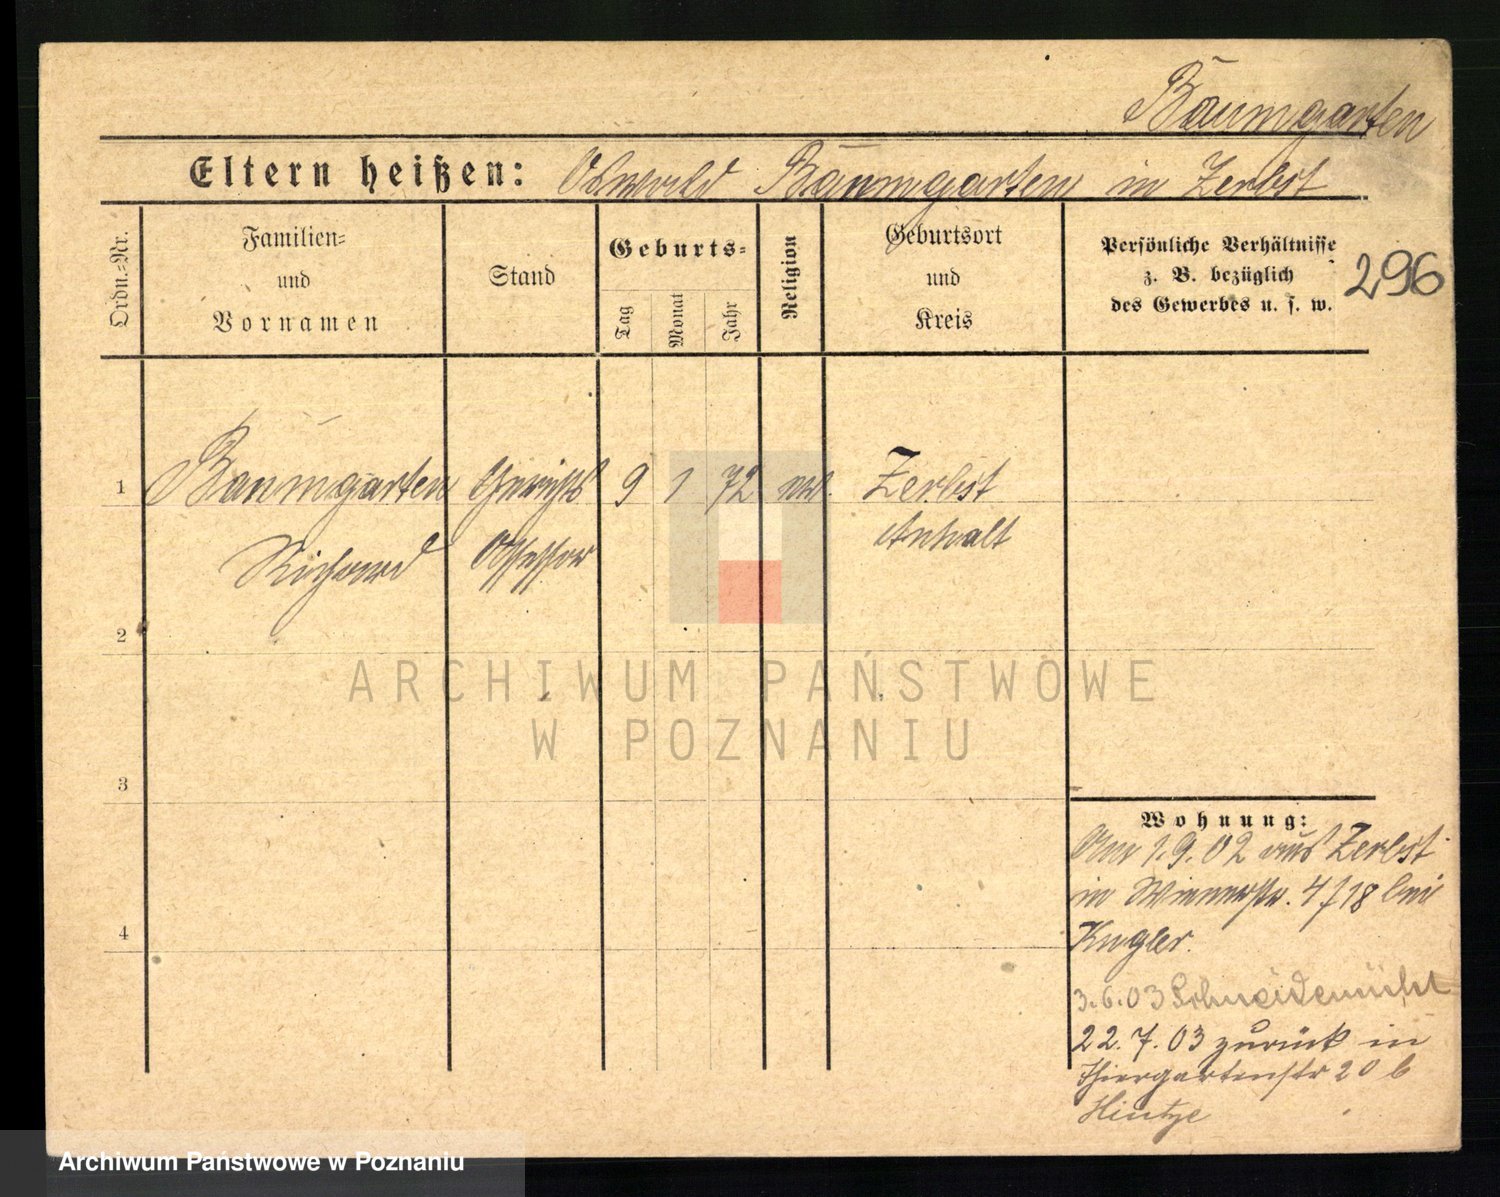 Baumgarten
Eltern heißen: Oswald Baumgarten in Zerbst
Ordn.=Nr.
Familien=
und
Vornamen
Stand
Geburts=
Tag
Monat
Jahr
Religion
Geburtsort
und
Kreis
Persönliche Verhältnisse
z. B. bezüglich
des Gewerbes u. s. w.
296
1 Baumgarten Gerichts 9 1 72 Zerbst
Richard Assessor Anhalt
2
3
4
Wohnung:
Am 1.9.02 aus Zerbst
in Wienerstr. 4/18 bei
Kugler.
3.6.03 Schneidemühl
22.7.03 zurück in
Thiergartenstr 20 b
Hintze
ARCHIWUM PAŃSTWOWE
W POZNANIU
Archiwum Państwowe w Poznaniu